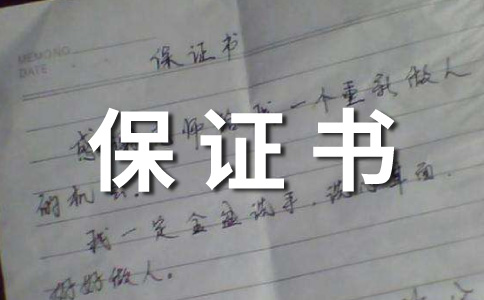 MEMO NO
DATE
保证书
感 师 我一个重新做人
保证书
的机会.
我一定金盆洗手,洗心革面.
好好做人。